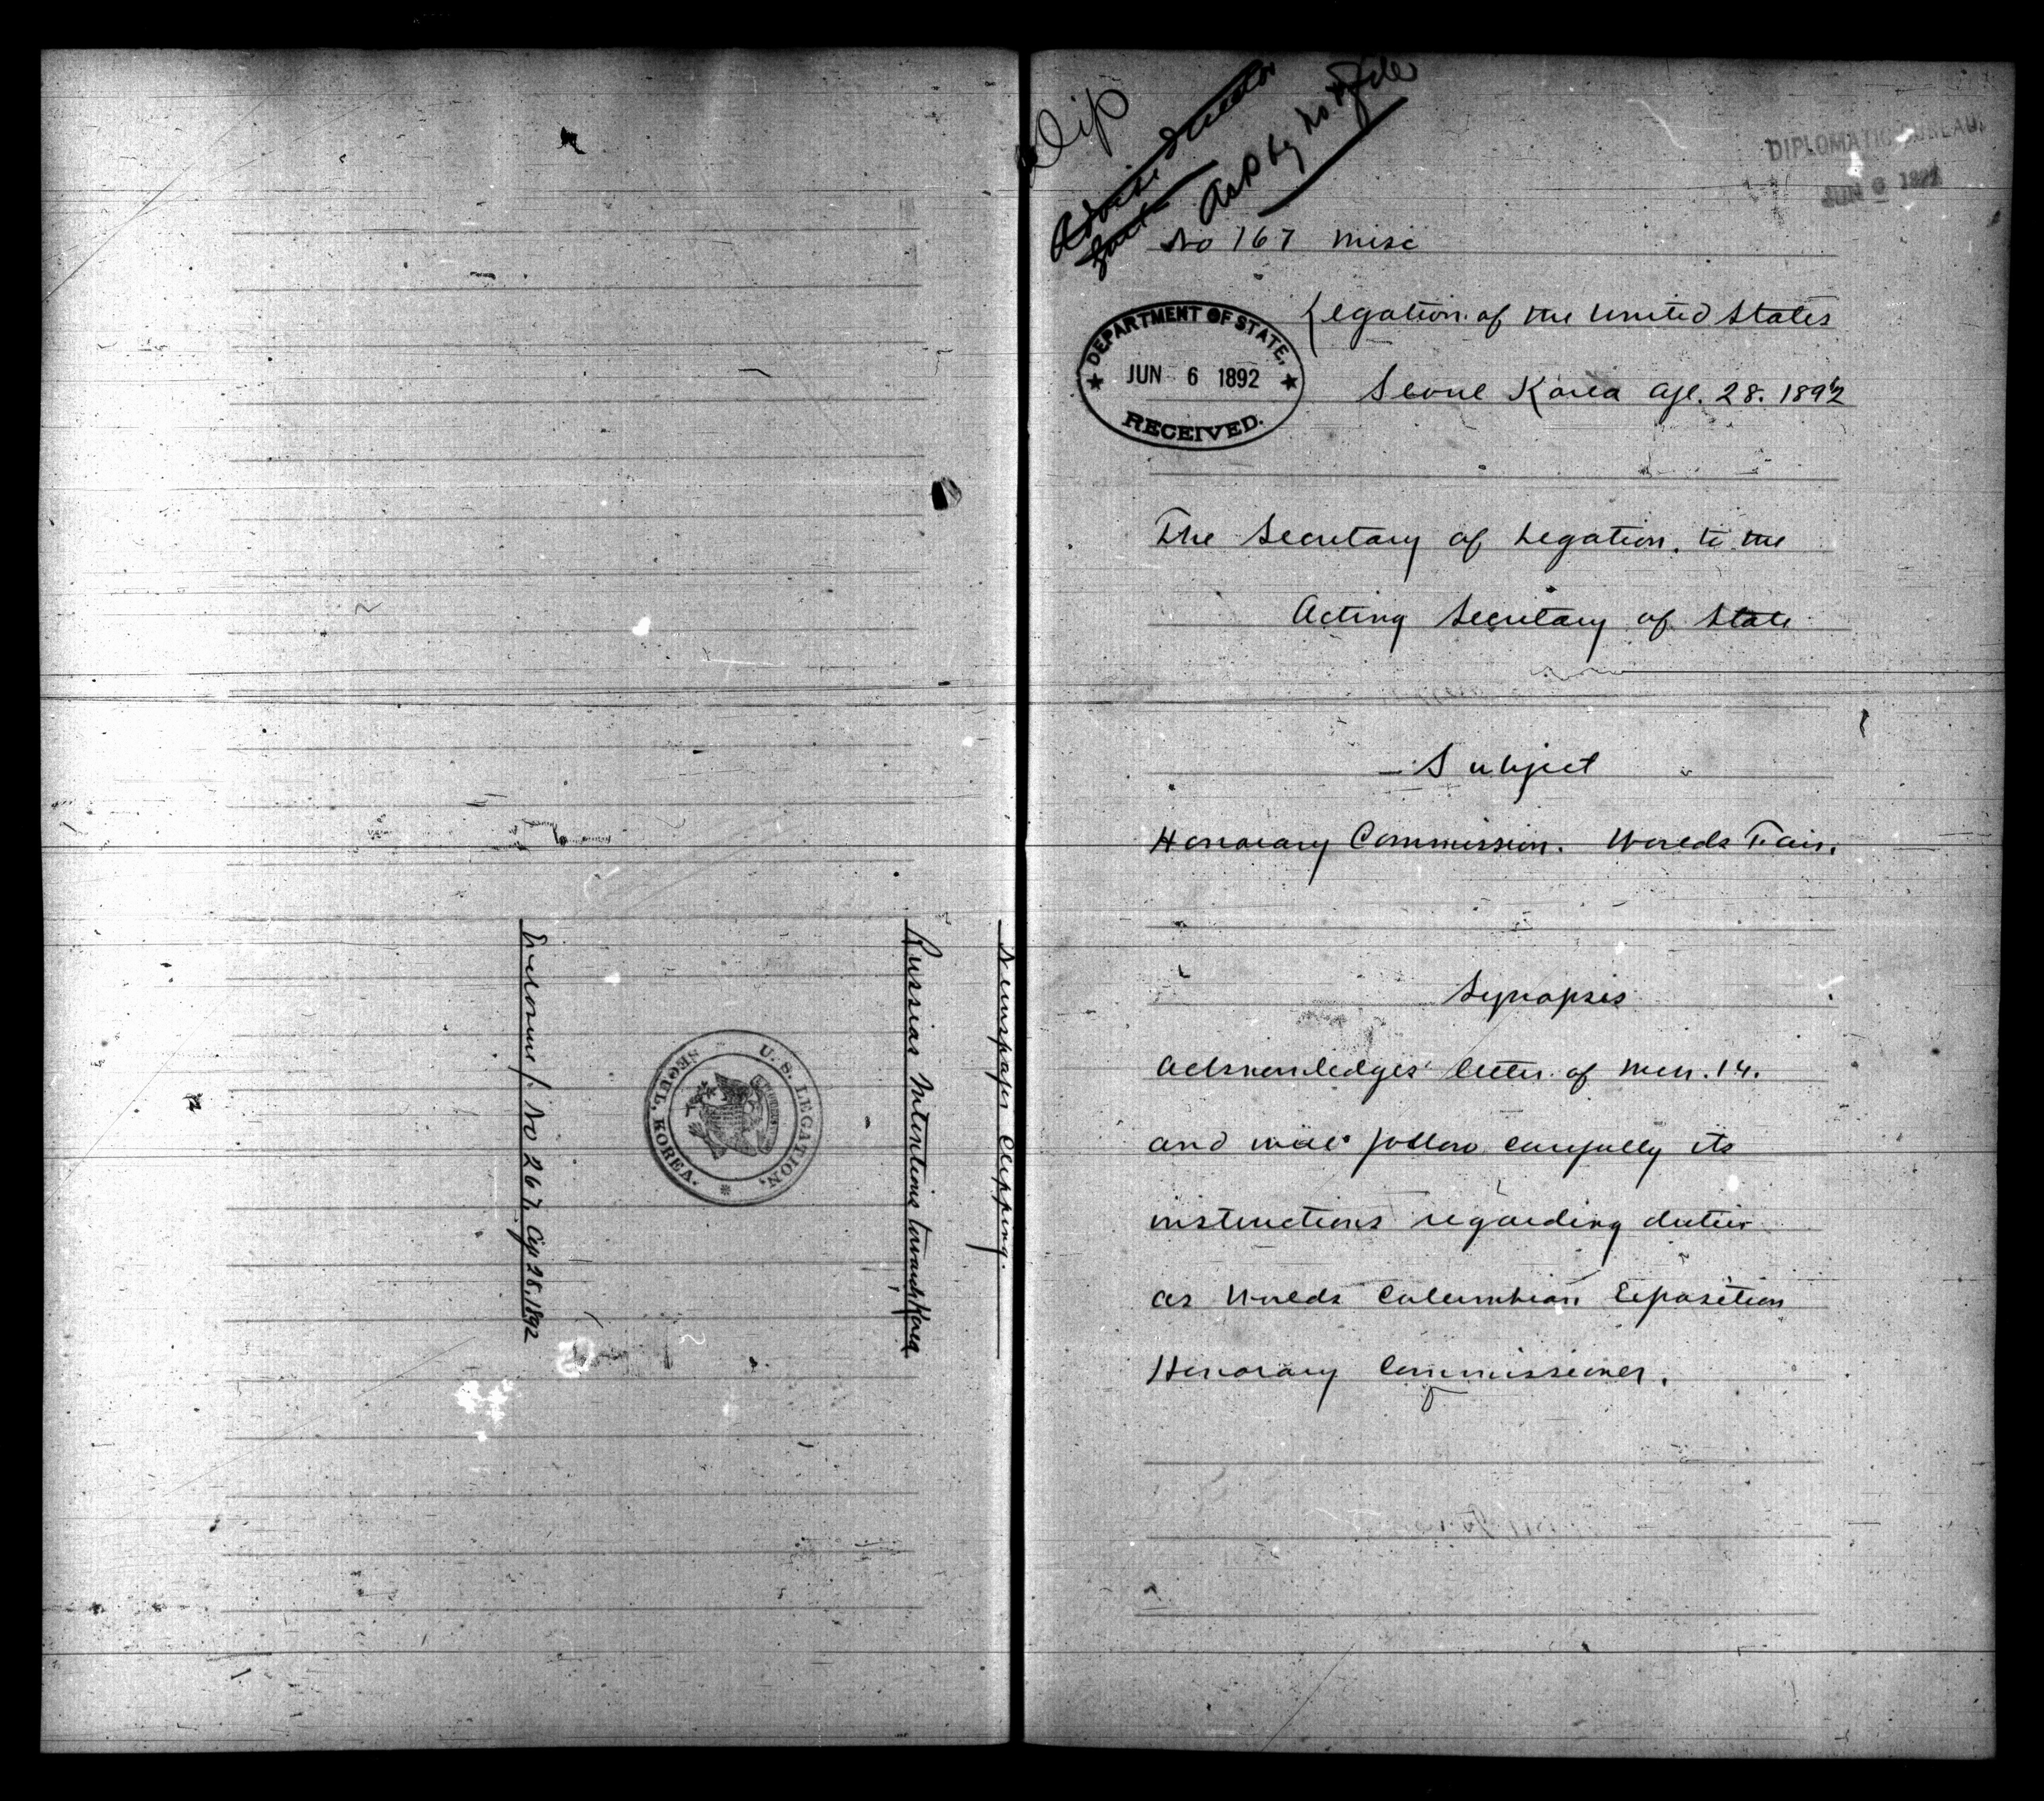 Newspaper Clipping.
Russias Intentions towards Korea
U.S. LEGATION,
SEOUL, KOREA.
Enclosure / No 267. Ap 28. 1892
Dip
Ack by
DIPLOMATIC BUREAU.
JUN 6 1892
No 167 Misc
DEPARTMENT OF STATE,
JUN 6 1892
RECEIVED.
Legation of the United States
Seoul Korea Apl. 28. 1892
The Secretary of Legation. to the
Acting Secretary of State
Subject
Honorary Commission. Worlds Fair.
Synopsis
Acknowledges letter of Mch. 14.
and will follow carefully its
instructions regarding duties
as Worlds Columbian Exposition
Honorary Commissioner.